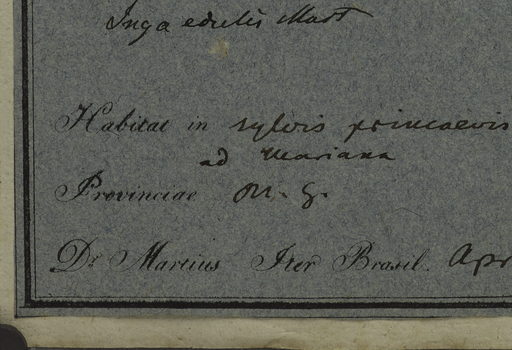 Inga edulis Mart
Habitat in sylvis primaevis
ad Mariana
Provinciae M. G.
Dr. Martius Iter Brasil. Apr